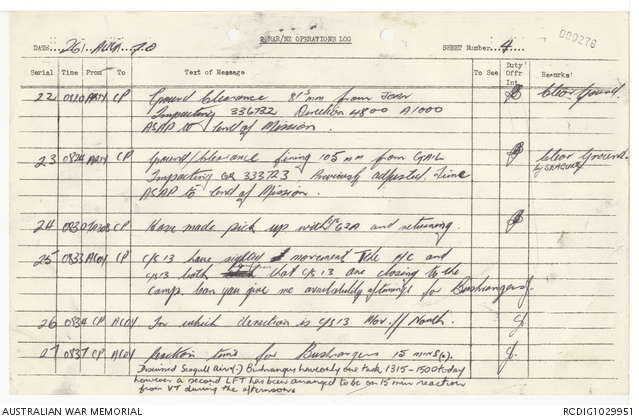 2 RAR/NZ OPERATIONS LOG
000276
DATE 26 AUG 70 SHEET Number 4
Serial Time From To Text of Message To See Duty Offr Int. Remarks
22 0810 ARTY CP Ground Clearance 81 mm from Clear Ground.
Impacting 336732 Direction 4800 A1000
ASAP to end of Mission.
23 0824 ARTY CP Ground Clearance firing 105 mm from GAIL Clear Ground
Impacting GR 333723. Previously adjusted. Time by
ASAP to end of Mission.
24 0830 CP Have made pick up with G2A and returning.
25 0833 ACOY CP C/S 13 have movement the A/C and
C/S 13 both that C/S 13 are closing to the
camp. Can you give me availability timings for Bushrangers
26 0834 CP ACOY In which direction is C/S 13 Mov. // North.
27 0837 CP ACOY Reaction time for Bushrangers 15 mins(.)
Seagull Air(.) Bushrangers have only one task 1315-1500 today
however a second LFT has been arranged to be on 15 min reaction
from VT during the afternoons
AUSTRALIAN WAR MEMORIAL RCDIG102995